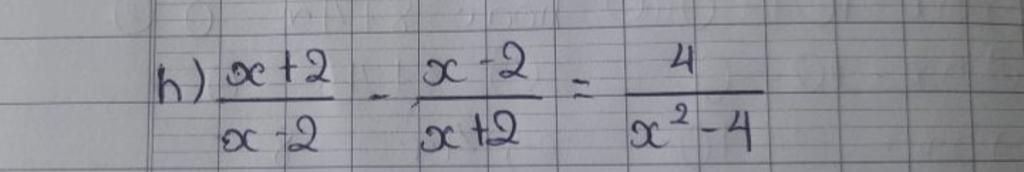 h) x+2/x-2 - x-2/x+2 = 4/x²-4